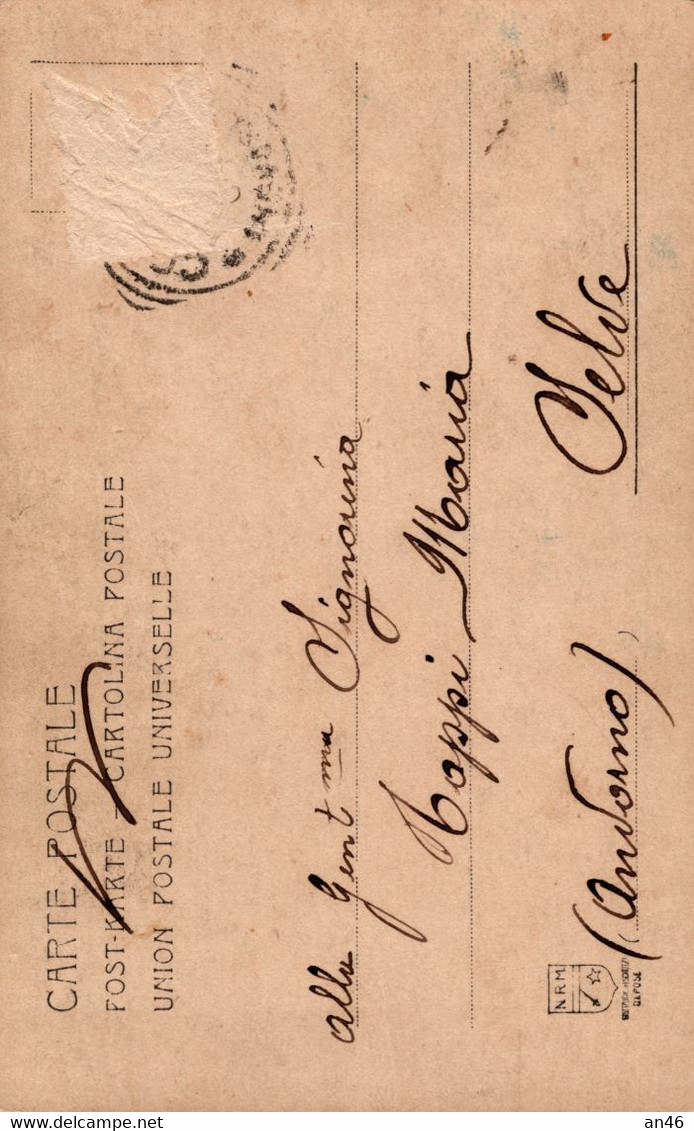 CARTE POSTALE
POST-KARTE - CARTOLINA POSTALE
UNION POSTALE UNIVERSELLE
Alla Gent.ma Signorina
Toppi Maria
Selve
(Andorno)
N.R.M.
DÉPOSÉ
an46